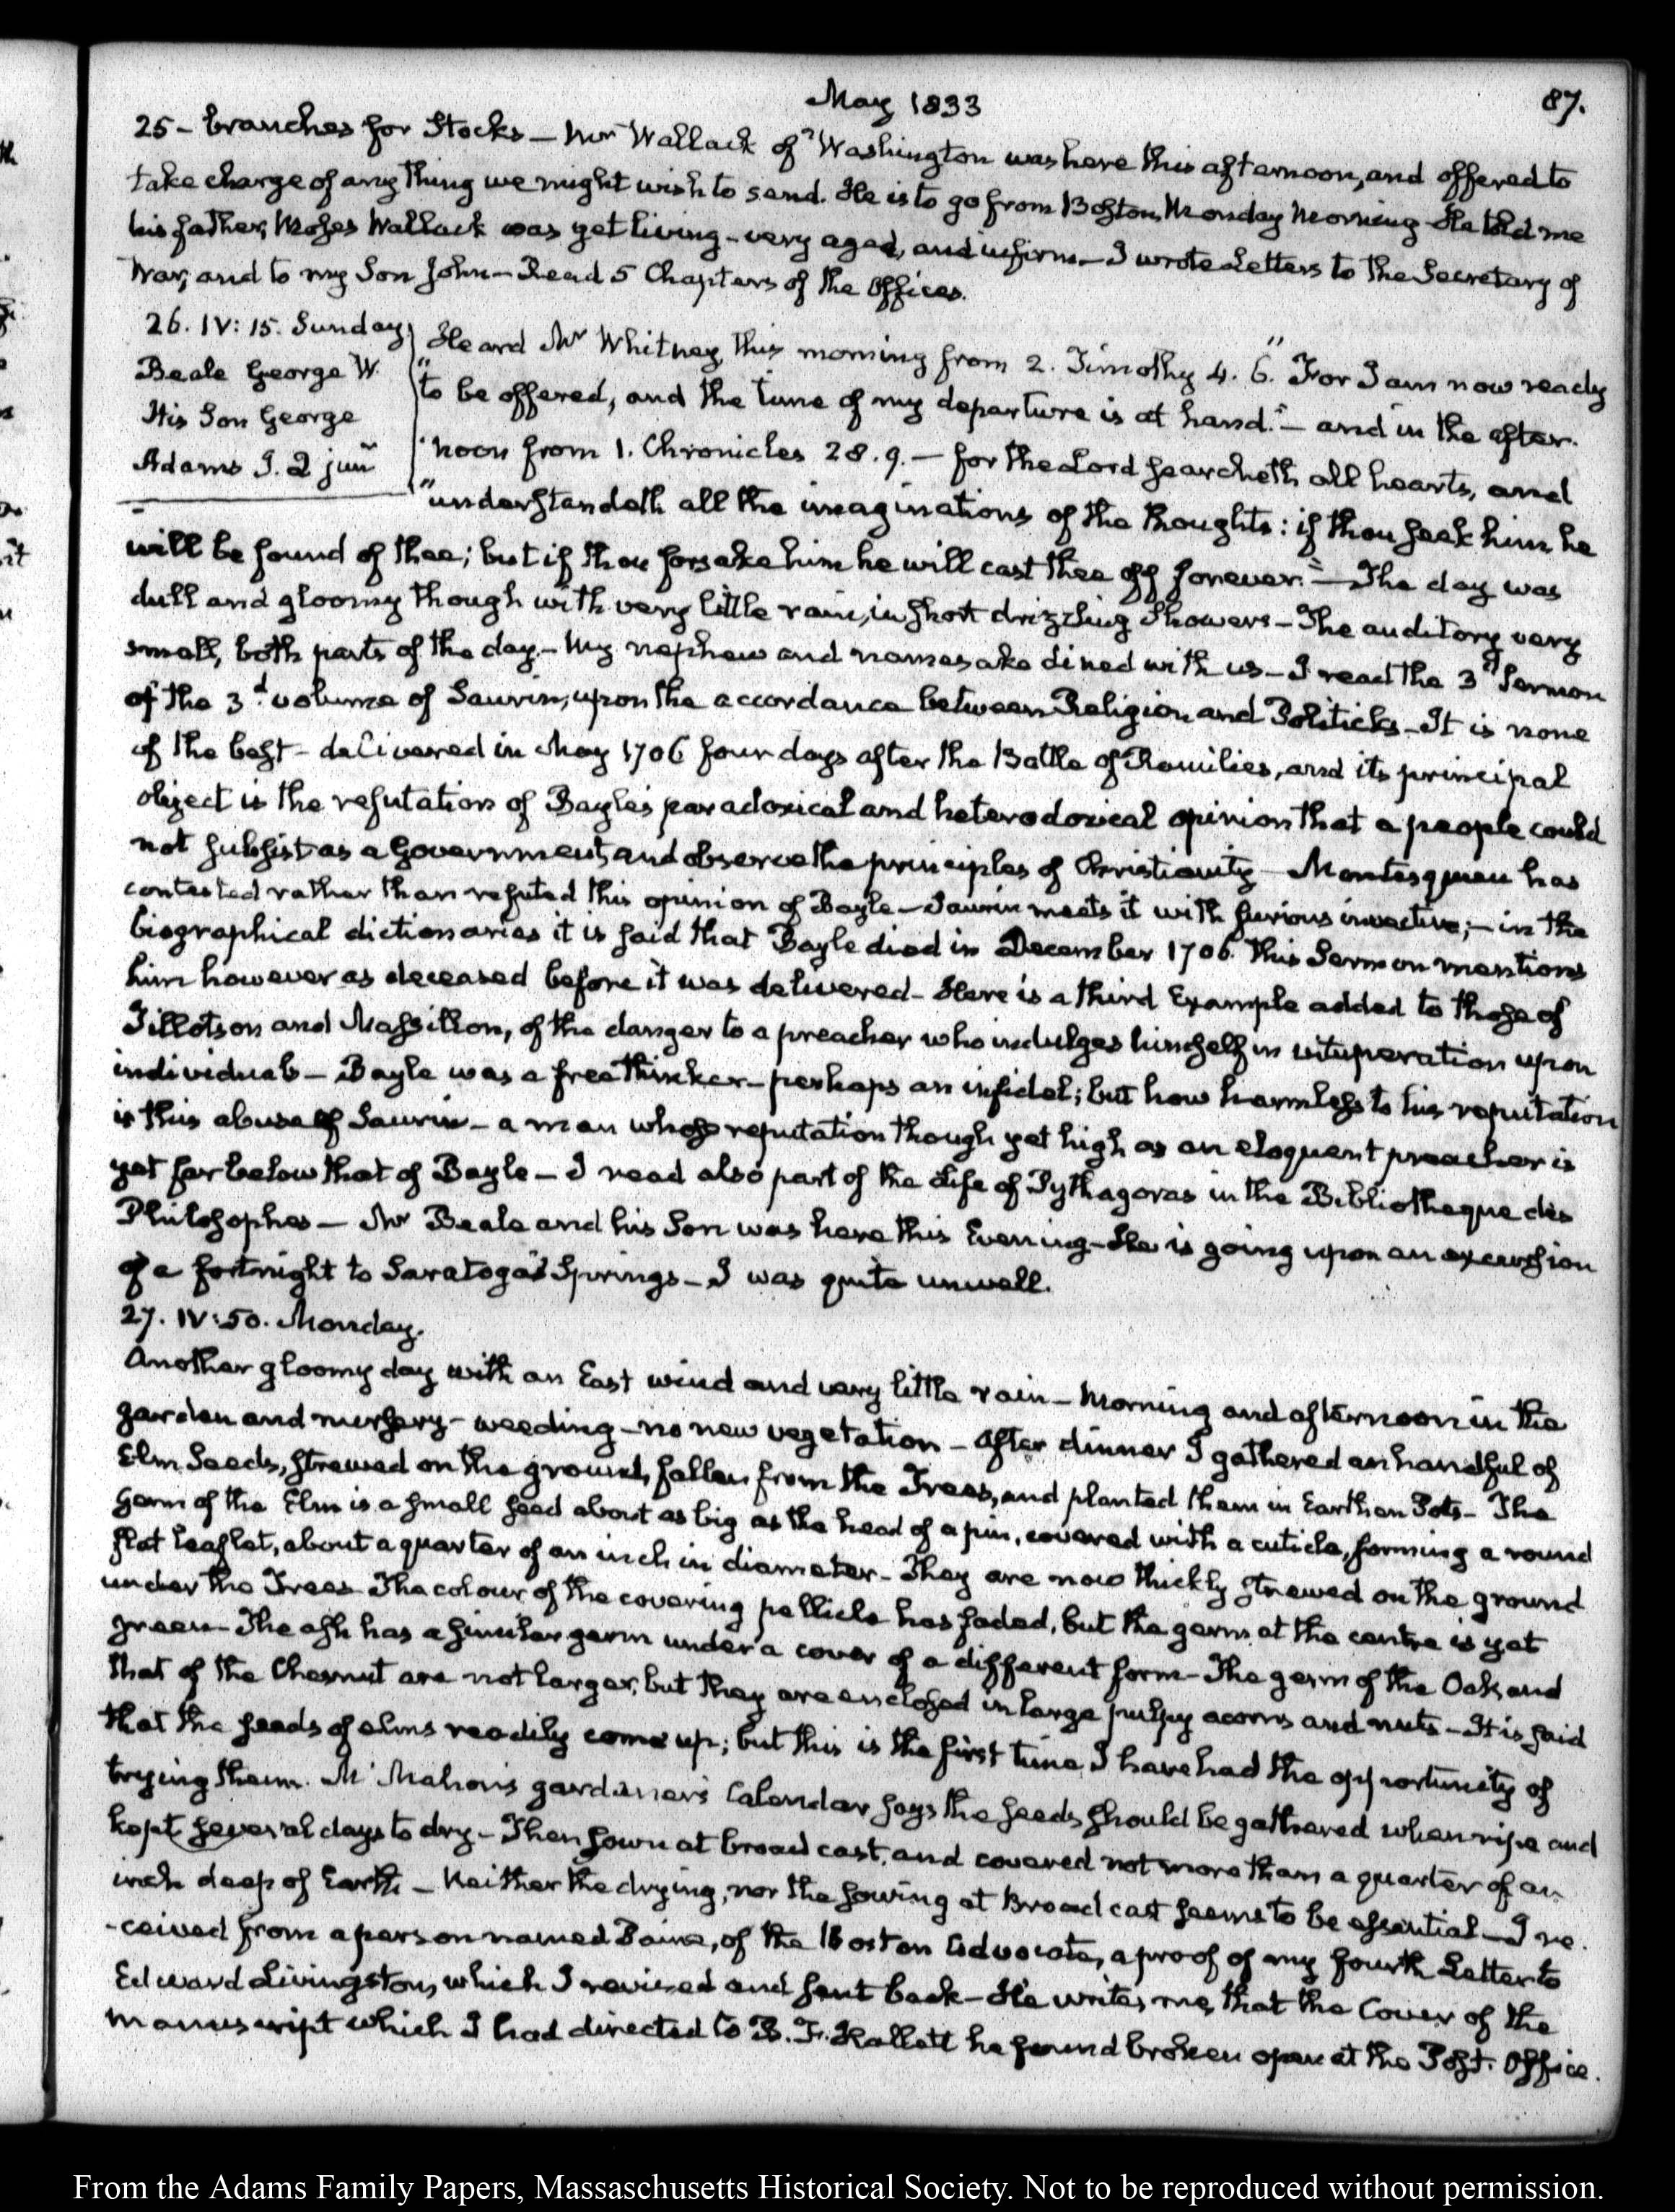 May 1833
87.
25 - branches for Stocks — Mr Wallack of Washington was here this afternoon, and offered to
take charge of any thing we might wish to send. He is to go from Boston, Monday Morning - He told me
his father, Moses Wallack was yet living - very aged, and infirm — I wrote Letters to the Secretary of
War, and to my Son John — Read 5 Chapters of the Offices.
26. IV: 15. Sunday
Beale George W.
His Son George
Adams J. Q junr
Heard Mr Whitney this morning from 2. Timothy 4. 6. "For I am now ready
"to be offered, and the time of my departure is at hand." — and in the after-
noon from 1. Chronicles 28. 9. — for the Lord searcheth all hearts, and
"understandeth all the imaginations of the thoughts: if thou seek him, he
will be found of thee; but if thou forsake him he will cast thee off forever." — The day was
dull and gloomy though with very little rain, in short drizzling showers — The auditory very
small, both parts of the day. — My nephew and namesake dined with us — I read the 3d Sermon
of the 3d volume of Saurin, upon the accordance between Religion and Politicks — It is none
of the best — delivered in May 1706 four days after the Battle of Ramilies, and its principal
object is the refutation of Bayle's paradoxical and heterodoxical opinion that a people could
not subsist as a Government, and observe the principles of Christianity — Montesquieu has
contested rather than refuted this opinion of Bayle — Saurin meets it with furious invective; — in the
biographical dictionaries it is said that Bayle died in December 1706. This Sermon mentions
him however as deceased before it was delivered — Here is a third Example added to those of
Tillotson and Massillon, of the danger to a preacher who indulges himself in vituperation upon
individuals — Bayle was a free thinker — perhaps an infidel; but how harmless to his reputation
is this abuse of Saurin — a man whose reputation though yet high as an eloquent preacher is
yet far below that of Bayle — I read also part of the Life of Pythagoras in the Bibliotheque des
Philosophes — Mr Beale and his Son was here this Evening — He is going upon an excursion
of a fortnight to Saratoga Springs — I was quite unwell.
27. IV: 50. Monday.
Another gloomy day with an East wind and very little rain — Morning and afternoon in the
garden and nursery — weeding — no new vegetation — After dinner I gathered an handful of
Elm Seeds, strewed on the ground, fallen from the Trees, and planted them in Earthen Pots — The
germ of the Elm is a small seed about as big as the head of a pin, covered with a cuticle, forming a round
flat leaflet, about a quarter of an inch in diameter — They are now thickly strewed on the ground
under the Trees — The colour of the covering pellicle has faded, but the germ at the centre is yet
green — The ash has a similar germ under a cover of a different form — The germ of the Oak, and
that of the Chesnut are not larger, but they are enclosed in large pulpy acorns and nuts — It is said
that the seeds of elms readily come up; but this is the first time I have had the opportunity of
trying them. McMahon's gardener's Calendar says the seeds should be gathered when ripe and
kept several days to dry — Then sown at broad cast, and covered not more than a quarter of an
inch deep of Earth — Neither the drying, nor the sowing at Broad cast seems to be essential — I re-
-ceived from a person named Paine, of the Boston Advocate, a proof of my fourth Letter to
Edward Livingston, which I revised and sent back — He writes me, that the Cover of the
manuscript which I had directed to B. F. Hallett he found broken open at the Post-Office.
From the Adams Family Papers, Massachusetts Historical Society. Not to be reproduced without permission.